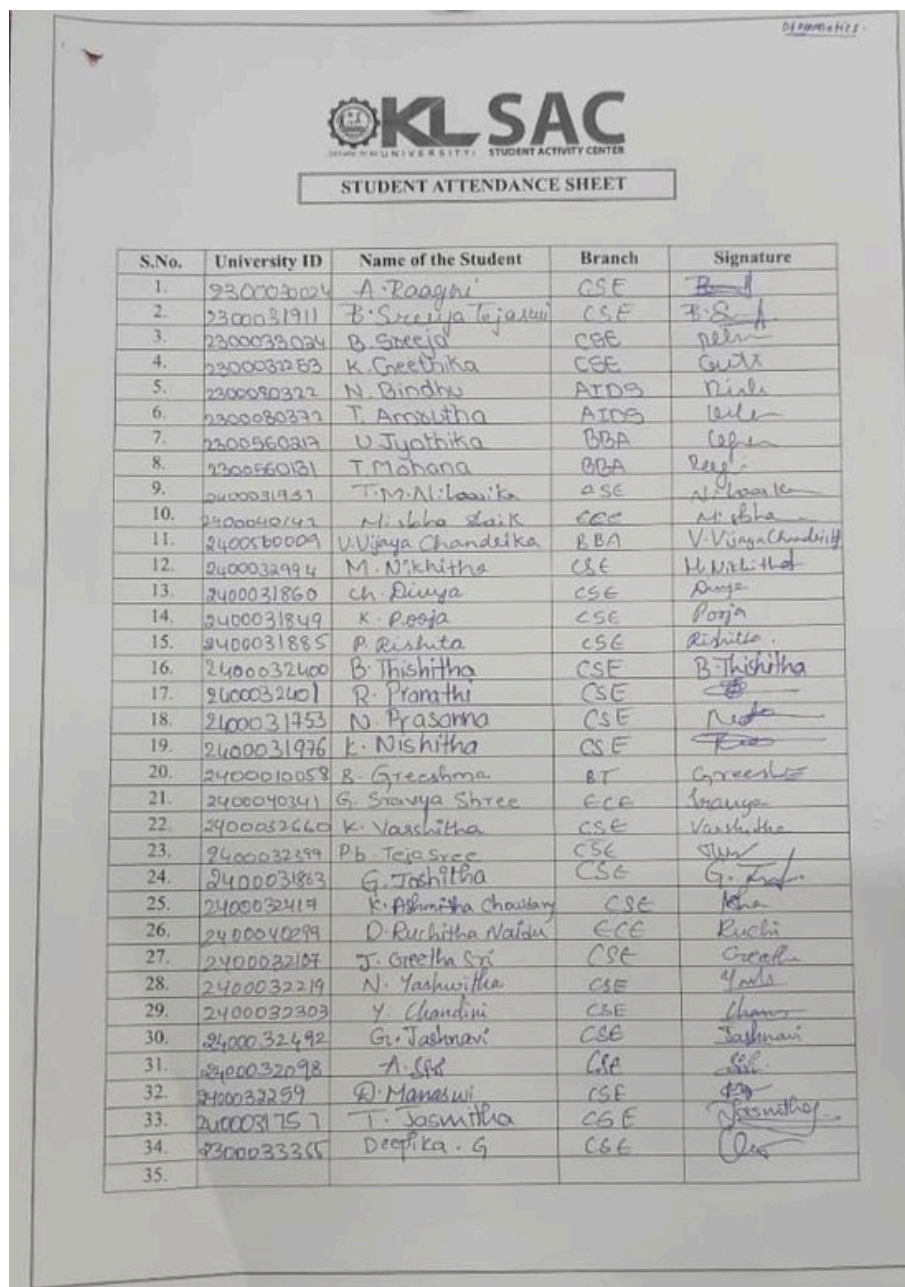 Dramatics.
KL SAC
(DEEMED TO BE UNIVERSITY) STUDENT ACTIVITY CENTER
STUDENT ATTENDANCE SHEET
S.No. University ID Name of the Student Branch Signature
1. 2300030024 A. Raagni CSE
2. 2300031911 B. Sreeya Tejaswi CSE
3. 2300033034 B. Sreeja CSE
4. 2300032253 K. Geethika CSE
5. 2300080322 N. Bindhu AIDS
6. 2300080372 T. Amrutha AIDS
7. 2300560317 U Jyothika BBA
8. 2300560131 T Mohana BBA
9. 2400031937 T.M. Nihaarika CSE
10. 2400040142 Misbha Shaik ECE Misbha
11. 2400560009 V.Vijaya Chandrika BBA
12. 2400032994 M. Nikhitha CSE M Nikhitha
13. 2400031860 ch. Divya CSE Divya
14. 2400031849 K. Pooja CSE Pooja
15. 2400031885 P. Rishita CSE Rishitha.
16. 2400032400 B. Thishitha CSE B. Thishitha
17. 2400032401 R. Pranathi CSE
18. 2400031753 N. Prasanna CSE
19. 2400031976 K. Nishitha CSE
20. 2400010058 B. Greeshma BT
21. 2400040341 G. Sravya Shree ECE Sravya
22. 2400032660 K. Varshitha CSE Varshitha
23. 2400032399 Pb. TejaSree CSE
24. 2400031863 G. Joshitha CSE
25. 2400032417 K. Ashmitha Chowdary CSE
26. 2400040299 D. Ruchitha Naidu ECE Ruchi
27. 2400032107 J. Greetha Sri CSE
28. 2400032219 N. Yashwitha CSE
29. 2400032303 Y. Chandini CSE
30. 2400032492 G. Jashnavi CSE Jashnavi
31. 2400032098 A. CSE
32. 2400032259 D. Manaswi CSE
33. 2400031757 T. Jasmitha CSE Jasmitha
34. 2300033365 Deepika . G CSE
35.